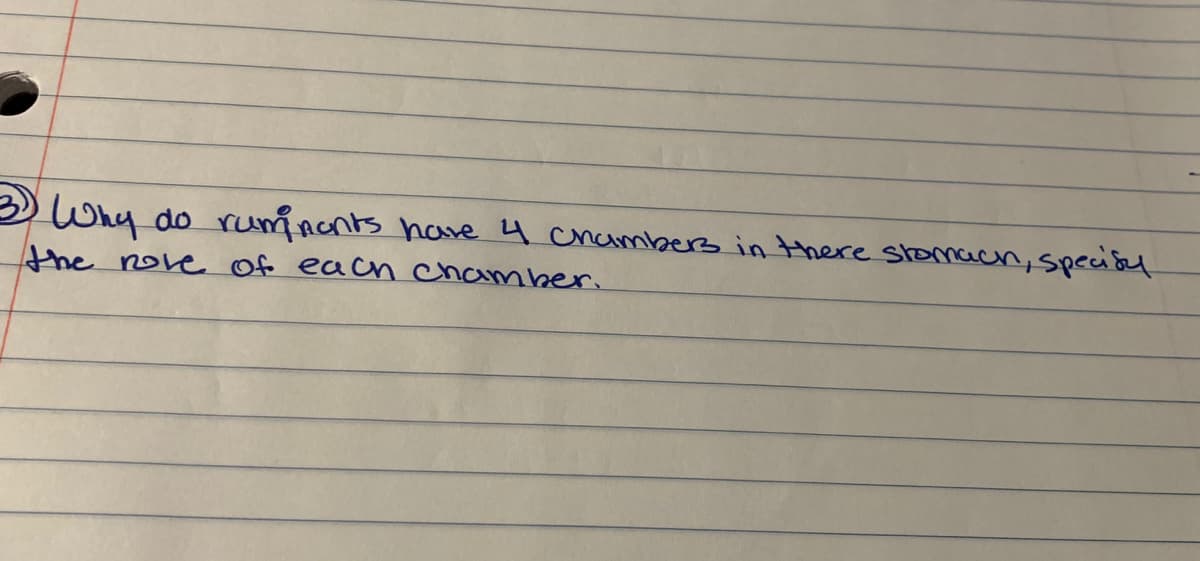 3) Why do ruminants have 4 chambers in there stomach, specify
the role of each chamber.